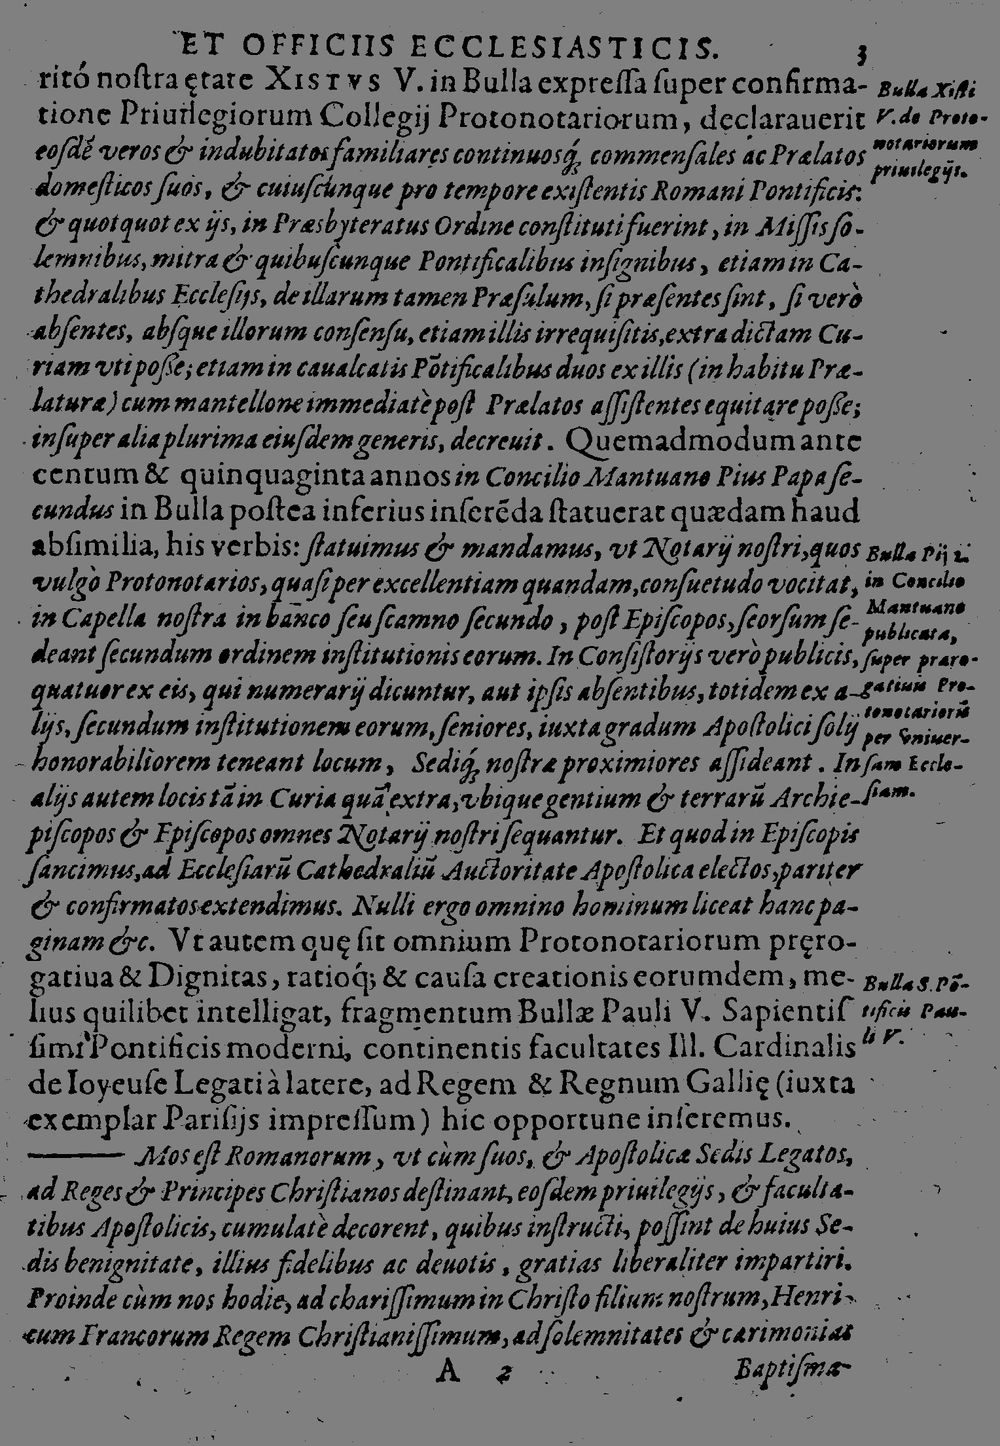 ET OFFICIIS ECCLESIASTICIS. 3
ritó noſtra ętate XISTVS V. in Bulla expreſſa ſuper confirma-
tione Priuilegiorum Collegij Protonotariorum, declarauerit
eoſdẽ veros & indubitatos familiares continuosq́; commenſales ac Prælatos
domeſticos ſuos, & cuiuſcunque pro tempore exiſtentis Romani Pontificis:
& quotquot ex ijs, in Præsbyteratus Ordine conſtituti fuerint, in Miſſis ſo-
lemnibus, mitra & quibuſcunque Pontificalibus inſignibus, etiam in Ca-
thedralibus Eccleſijs, de illarum tamen Præſulum, ſi præſentes ſint, ſi verò
abſentes, abſque illorum conſenſu, etiam illis irrequiſitis, extra dictam Cu-
riam vti poſſe; etiam in caualcatis Põtificalibus duos ex illis (in habitu Præ-
laturæ) cum mantellone immediatè poſt Prælatos aſſiſtentes equitare poſſe;
inſuper alia plurima eiuſdem generis, decreuit. Quemadmodum ante
centum & quinquaginta annos in Concilio Mantuano Pius Papa ſe-
cundus in Bulla poſtea inferius inſerẽda ſtatuerat quædam haud
abſimilia, his verbis: ſtatuimus & mandamus, vt Notarij noſtri, quos
vulgò Protonotarios, quaſi per excellentiam quandam, conſuetudo vocitat,
in Capella noſtra in banco ſeu ſcamno ſecundo, poſt Epiſcopos, ſeorſum ſe-
deant ſecundum ordinem inſtitutionis eorum. In Conſiſtorijs verò publicis,
quatuor ex eis, qui numerarij dicuntur, aut ipſis abſentibus, totidem ex a-
lijs, ſecundum inſtitutionem eorum, ſeniores, iuxta gradum Apoſtolici ſolij
honorabiliorem teneant locum, Sediq́; noſtræ proximiores aſſideant. In
alijs autem locis tã in Curia quã extra, vbique gentium & terrarũ Archie-
piſcopos & Epiſcopos omnes Notarij noſtri ſequantur. Et quod in Epiſcopis
ſancimus, ad Eccleſiarũ Cathedraliũ Auctoritate Apoſtolica electos, pariter
& confirmatos extendimus. Nulli ergo omnino hominum liceat hanc pa-
ginam &c. Vt autem quę ſit omnium Protonotariorum pręro-
gatiua & Dignitas, ratioq́; & cauſa creationis eorumdem, me-
lius quilibet intelligat, fragmentum Bullæ Pauli V. Sapientiſ
ſimi Pontificis moderni, continentis facultates Ill. Cardinalis
de Ioyeuſe Legati à latere, ad Regem & Regnum Gallię (iuxta
exemplar Pariſijs impreſſum) hic opportune inſeremus.
Mos eſt Romanorum, vt cùm ſuos, & Apoſtolicæ Sedis Legatos,
ad Reges & Principes Chriſtianos deſtinant, eoſdem priuilegijs, & faculta-
tibus Apoſtolicis, cumulatè decorent, quibus inſtructi, poſſint de huius Se-
dis benignitate, illius fidelibus ac deuotis, gratias liberaliter impartiri.
Proinde cùm nos hodie, ad chariſſimum in Chriſto filium noſtrum, Henri-
cum Francorum Regem Chriſtianiſſimum, ad ſolemnitates & cærimonias
A 2 Baptiſma-
Bulla Xiſti
V. de Proto-
notariorum
priuilegijs.
Bulla Pij 2.
in Concilio
Mantuano
publicata,
ſuper præro-
gatiuis Pro-
tonotariorũ
per vniuer-
ſam Eccle-
ſiam.
Bulla S. Põ-
tificis Pau-
li V.